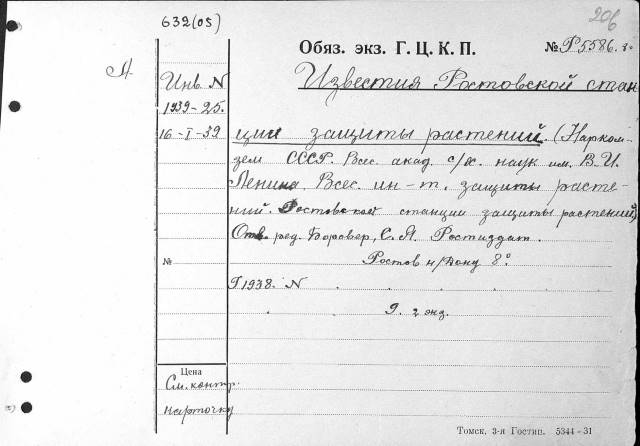 632(05)
206
Обяз. экз. Г. Ц. К. П. №Р5586.
А
Инв. N
1939-25.
16-I-39
Известия Ростовской стан
ции защиты растений. (Нарком-
зем СССР. Всес. акад. с/х. наук им. В. И.
Ленина. Всес. ин-т. защиты расте-
ний. Ростовской станции защиты растений)
Отв. ред. Боровер, С. Я. Ростиздат.
№ Ростов н/Дону 8°
Г 1938. N
9. 2 экз.
Цена
См. контр.
карточку
Томск. 3-я Гостип. 5344-31